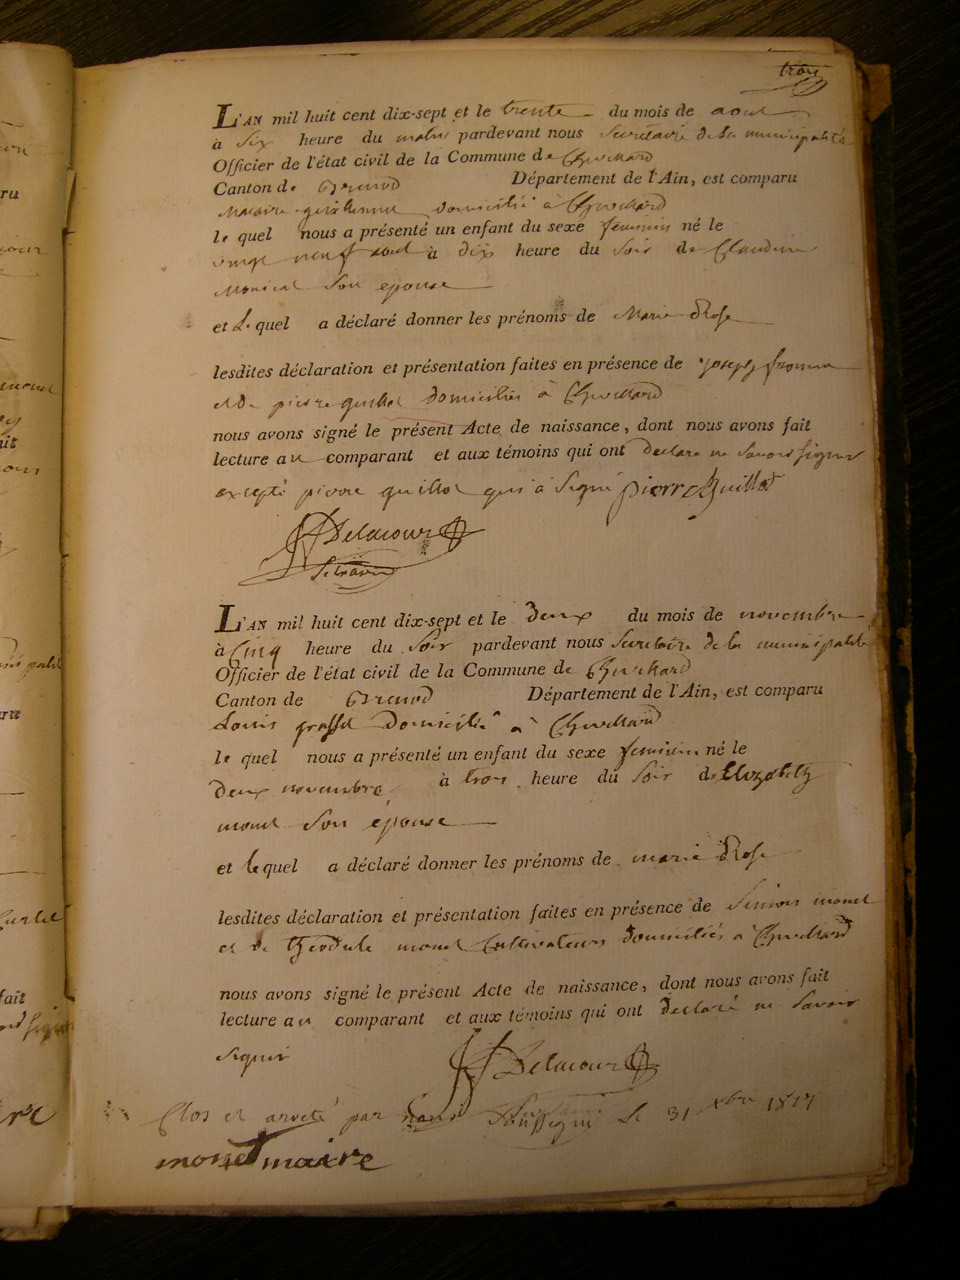 trois
L'AN mil huit cent dix-sept et le trente du mois de aout
à Six heure du matin pardevant nous Secretaire de la municipalité
Officier de l'état civil de la Commune de
Canton de Département de l'Ain, est comparu
domicilié à
le quel nous a présenté un enfant du sexe feminin né le
vingt neuf aout à dix heure du Soir de Claudine
Son epouse
et Le quel a déclaré donner les prénoms de Marie Rose
lesdites déclaration et présentation faites en présence de joseph
et de pierre guillot domiciliés à
nous avons signé le présent Acte de naissance, dont nous avons fait
lecture au comparant et aux témoins qui ont declaré ne Savoir Signer
excepté pierre guillot qui à Signé pierre Guillot
Delacour
L'AN mil huit cent dix-sept et le deux du mois de novembre
à Cinq heure du Soir pardevant nous Secretaire de la municipalité
Officier de l'état civil de la Commune de
Canton de Département de l'Ain, est comparu
Louis domicilié à
le quel nous a présenté un enfant du sexe feminin né le
deux novembre à trois heure du Soir de Elizabeth
monet Son épouse
et le quel a déclaré donner les prénoms de marie Rose
lesdites déclaration et présentation faites en présence de Simon monet
et de monet Cultivateurs domiciliés à
nous avons signé le présent Acte de naissance, dont nous avons fait
lecture au comparant et aux témoins qui ont declaré ne Savoir
Signer
Delacour
Clos et arreté par nous Soussigné le 31 xbre 1817
monet maire